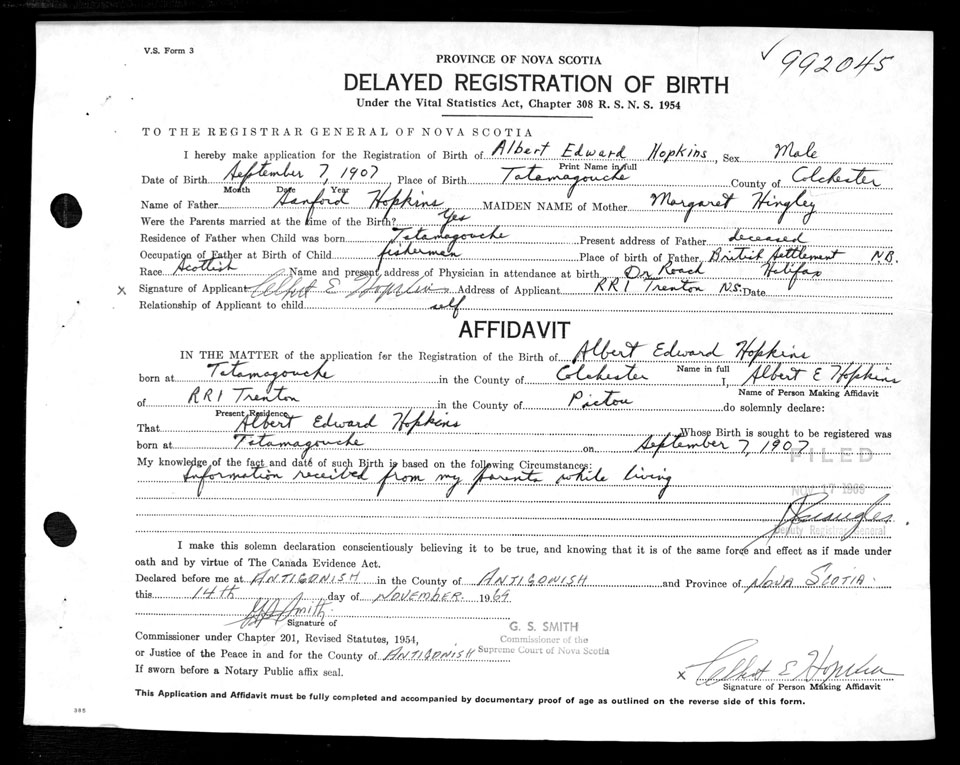 V.S. Form 3
992045
PROVINCE OF NOVA SCOTIA
DELAYED REGISTRATION OF BIRTH
Under the Vital Statistics Act, Chapter 308 R. S. N. S. 1954
TO THE REGISTRAR GENERAL OF NOVA SCOTIA
I hereby make application for the Registration of Birth of Albert Edward Hopkins, Sex Male
Print Name in full
Date of Birth September 7, 1907 Place of Birth Tatamagouche County of Colchester
Month Date Year
Name of Father Sanford Hopkins MAIDEN NAME of Mother Margaret Hingley
Were the Parents married at the time of the Birth? Yes
Residence of Father when Child was born Tatamagouche Present address of Father deceased
Occupation of Father at Birth of Child fisherman Place of birth of Father British Settlement N.B.
Race Scottish Name and present address of Physician in attendance at birth Dr Road Halifax
x Signature of Applicant Albert E Hopkins Address of Applicant RR1 Trenton N.S. Date
Relationship of Applicant to child self
AFFIDAVIT
IN THE MATTER of the application for the Registration of the Birth of Albert Edward Hopkins
Name in full
born at Tatamagouche in the County of Colchester I, Albert E Hopkins
Name of Person Making Affidavit
of RR1 Trenton in the County of Pictou do solemnly declare:
Present Residence
That Albert Edward Hopkins Whose Birth is sought to be registered was
born at Tatamagouche on September 7, 1907
FILED
My knowledge of the fact and date of such Birth is based on the following Circumstances:
Information received from my parents while living
NOV 17
Deputy Registrar General
I make this solemn declaration conscientiously believing it to be true, and knowing that it is of the same force and effect as if made under
oath and by virtue of The Canada Evidence Act.
Declared before me at ANTIGONISH in the County of ANTIGONISH and Province of NOVA SCOTIA.
this 14th day of NOVEMBER 1969
G S Smith
Signature of
G. S. SMITH
Commissioner of the
Supreme Court of Nova Scotia
Commissioner under Chapter 201, Revised Statutes, 1954,
or Justice of the Peace in and for the County of ANTIGONISH
If sworn before a Notary Public affix seal.
x Albert E Hopkins
Signature of Person Making Affidavit
This Application and Affidavit must be fully completed and accompanied by documentary proof of age as outlined on the reverse side of this form.
385